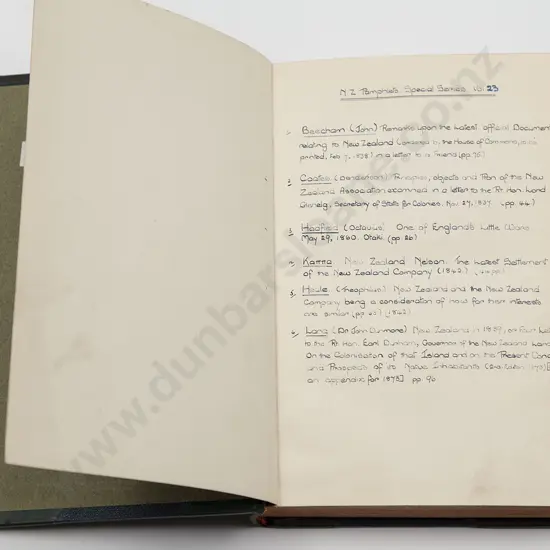 N.Z Pamphlets Special Series Vol 23
1. Beecham (John) Remarks upon the latest official Document
relating to New Zealand ( the House of Commons,
printed, Feb 7, 1838) in a letter to a Friend (pp. 75)
2. Coates (Danderson) Principles, objects and Plan of the New
Zealand Association examined in a letter to the Rt. Hon. Lord
Glenelg, Secretary of State for Colonies. Nov 27, 1837. (pp. 44)
3. Hadfield (Octavius) One of England's Little Wars.
May 29, 1860. Otaki. (pp. 26)
4. New Zealand Nelson. The Latest Settlement
of the New Zealand Company (1842.
5. (Theophilus) New Zealand and the New Zealand
Company being a consideration of how far their interests
are similar (pp. 1842)
6. Lang (Dr. John Dunmore) New Zealand in 1839, or Four
to the Rt. Hon. Earl Durham, Governor of the New Zealand Land
On the Colonisation of that Island and on the Present
and Prospects of its Native Inhabitants
an appendix for 1873] pp. 96
www.dunbarsloane.co.nz